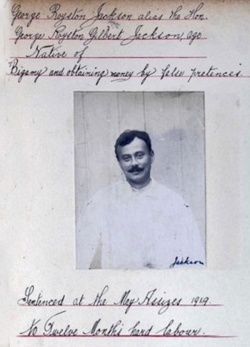 George Royston Jackson alias the Hon.
George Royston Gilbert Jackson, age
Native of
"Bigamy and obtaining money by false pretences
Jackson
Sentenced at the May Assizes 1919
To Twelve Months hard labour.